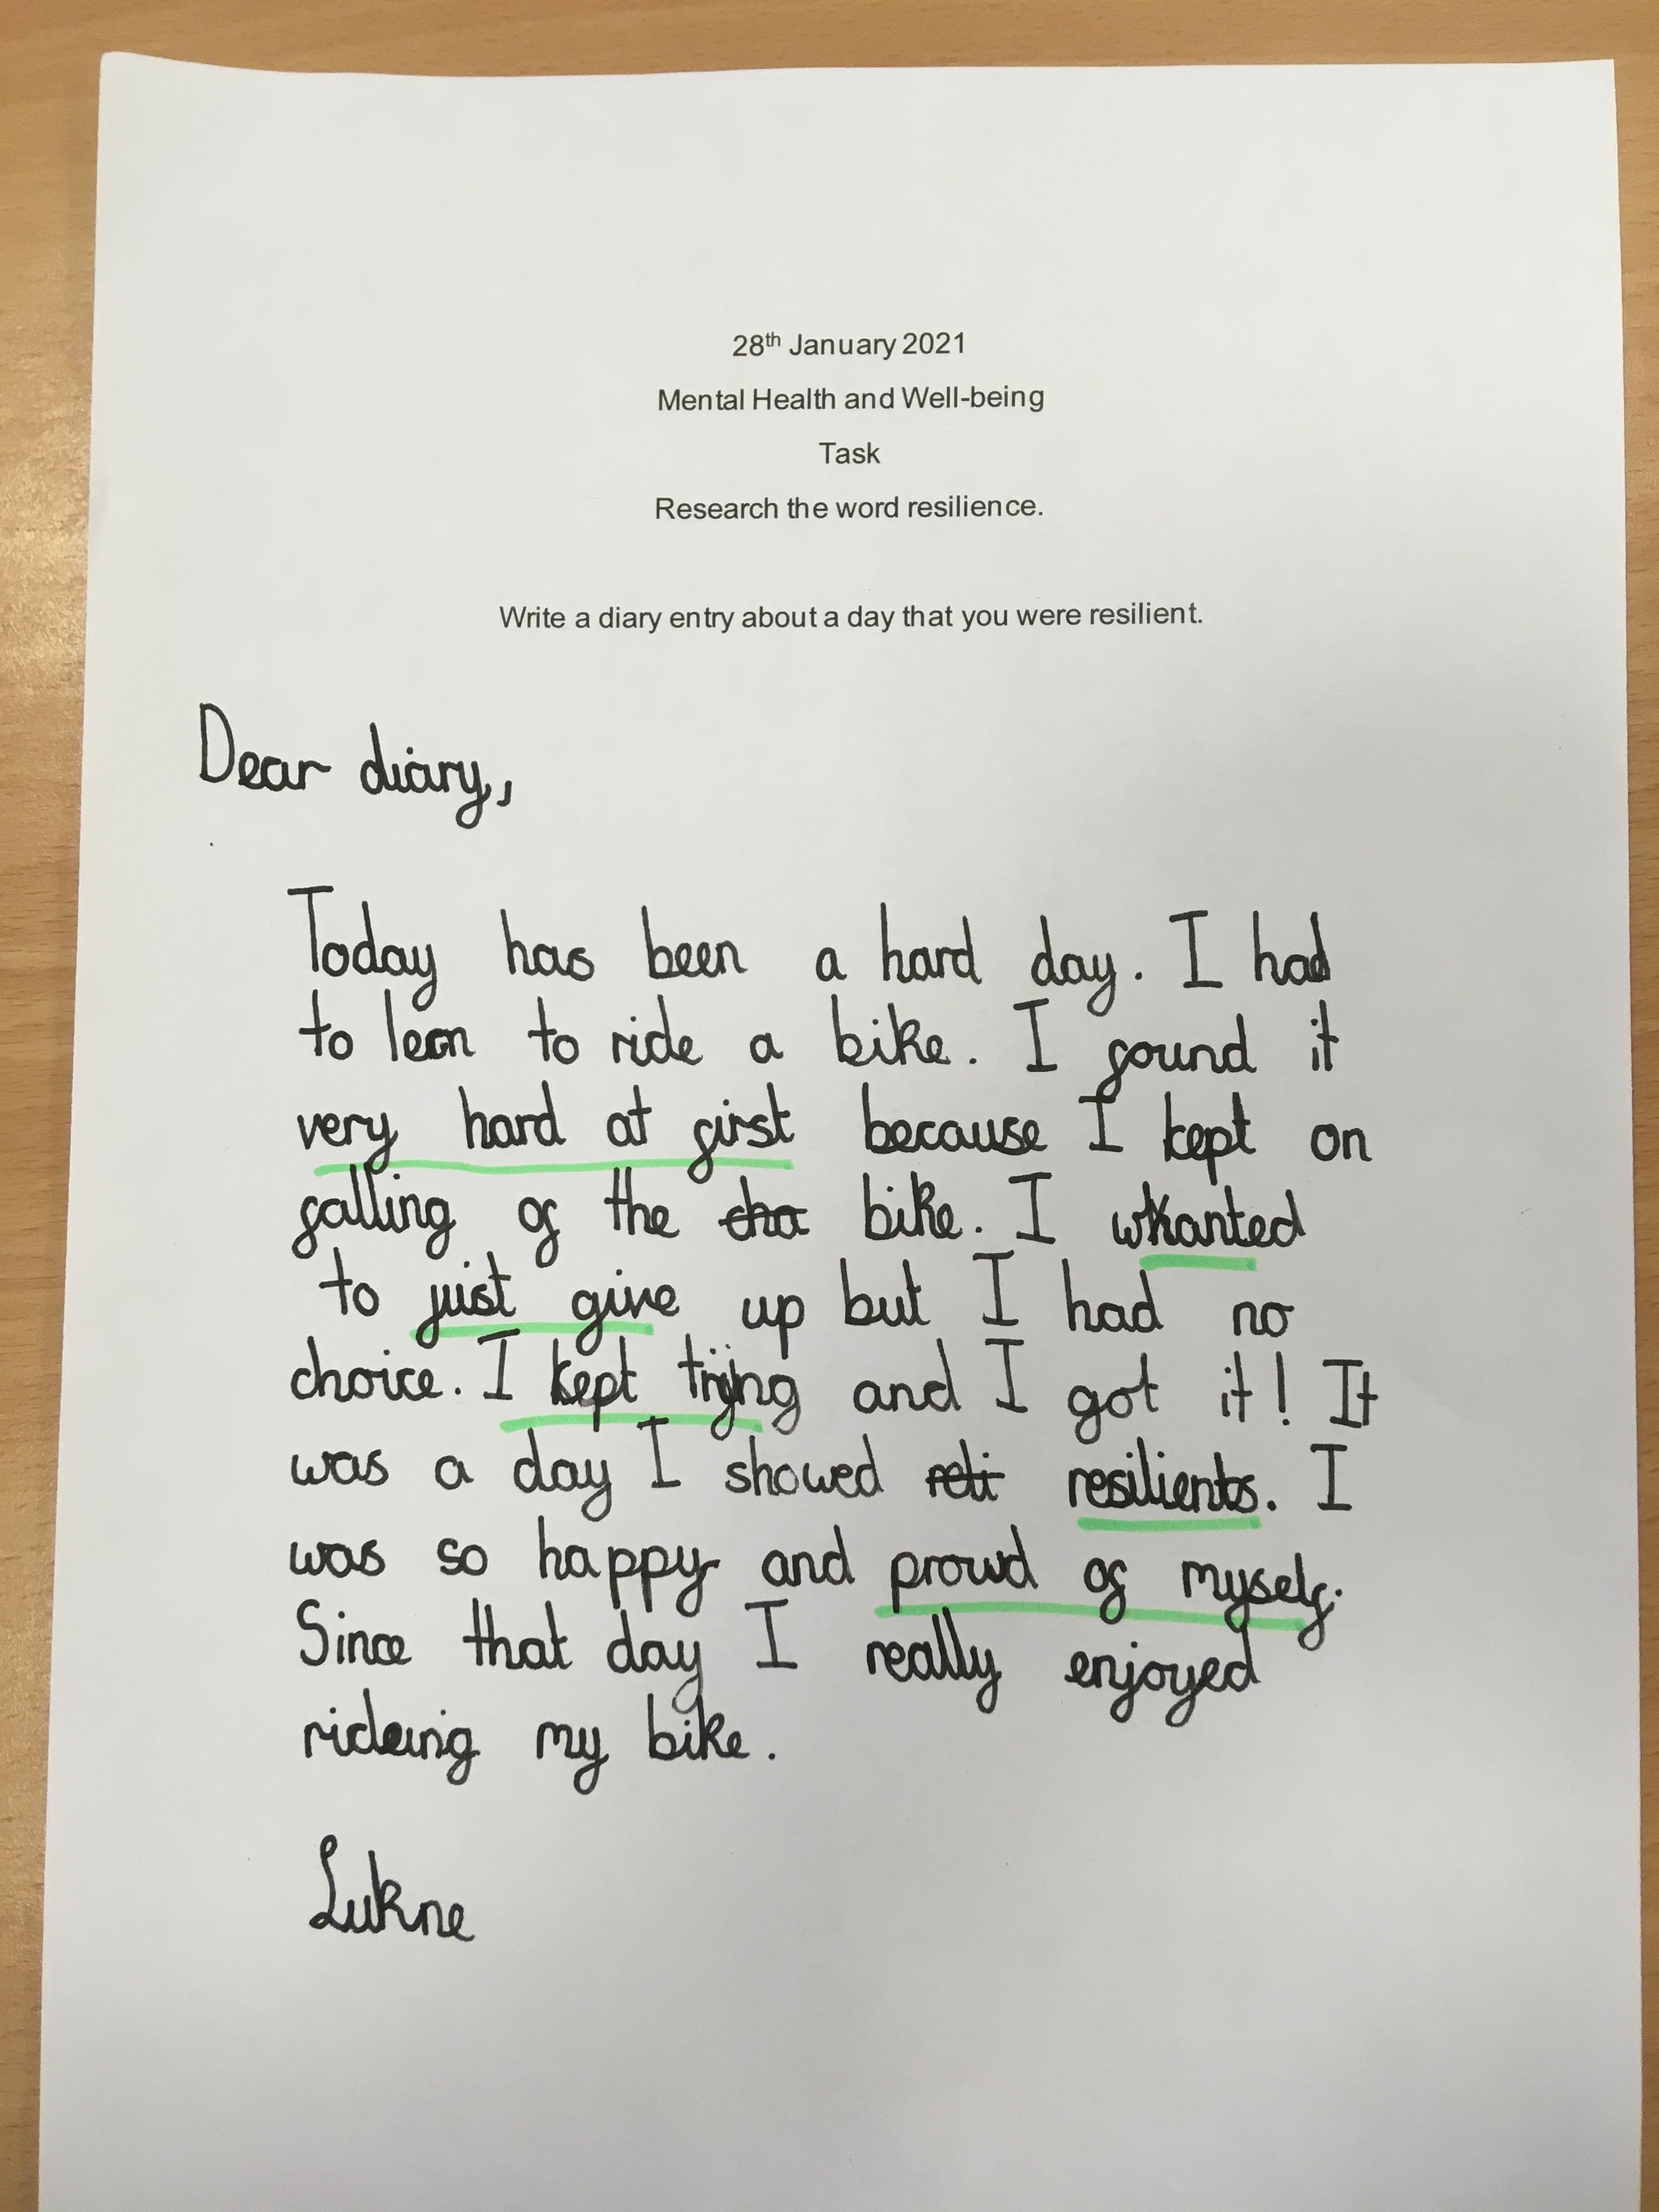 28th January 2021
Mental Health and Well-being
Task
Research the word resilience.
Write a diary entry about a day that you were resilient.
Dear diary,
Today has been a hard day. I had
to lean to ride a bike. I found it
very hard at first because I kept on
falling of the cha bike. I wanted
to just give up but I had no
choice. I kept trying and I got it! It
was a day I showed reli resilients. I
was so happy and proud of myself.
Since that day I really enjoyed
rideing my bike.
Lukne